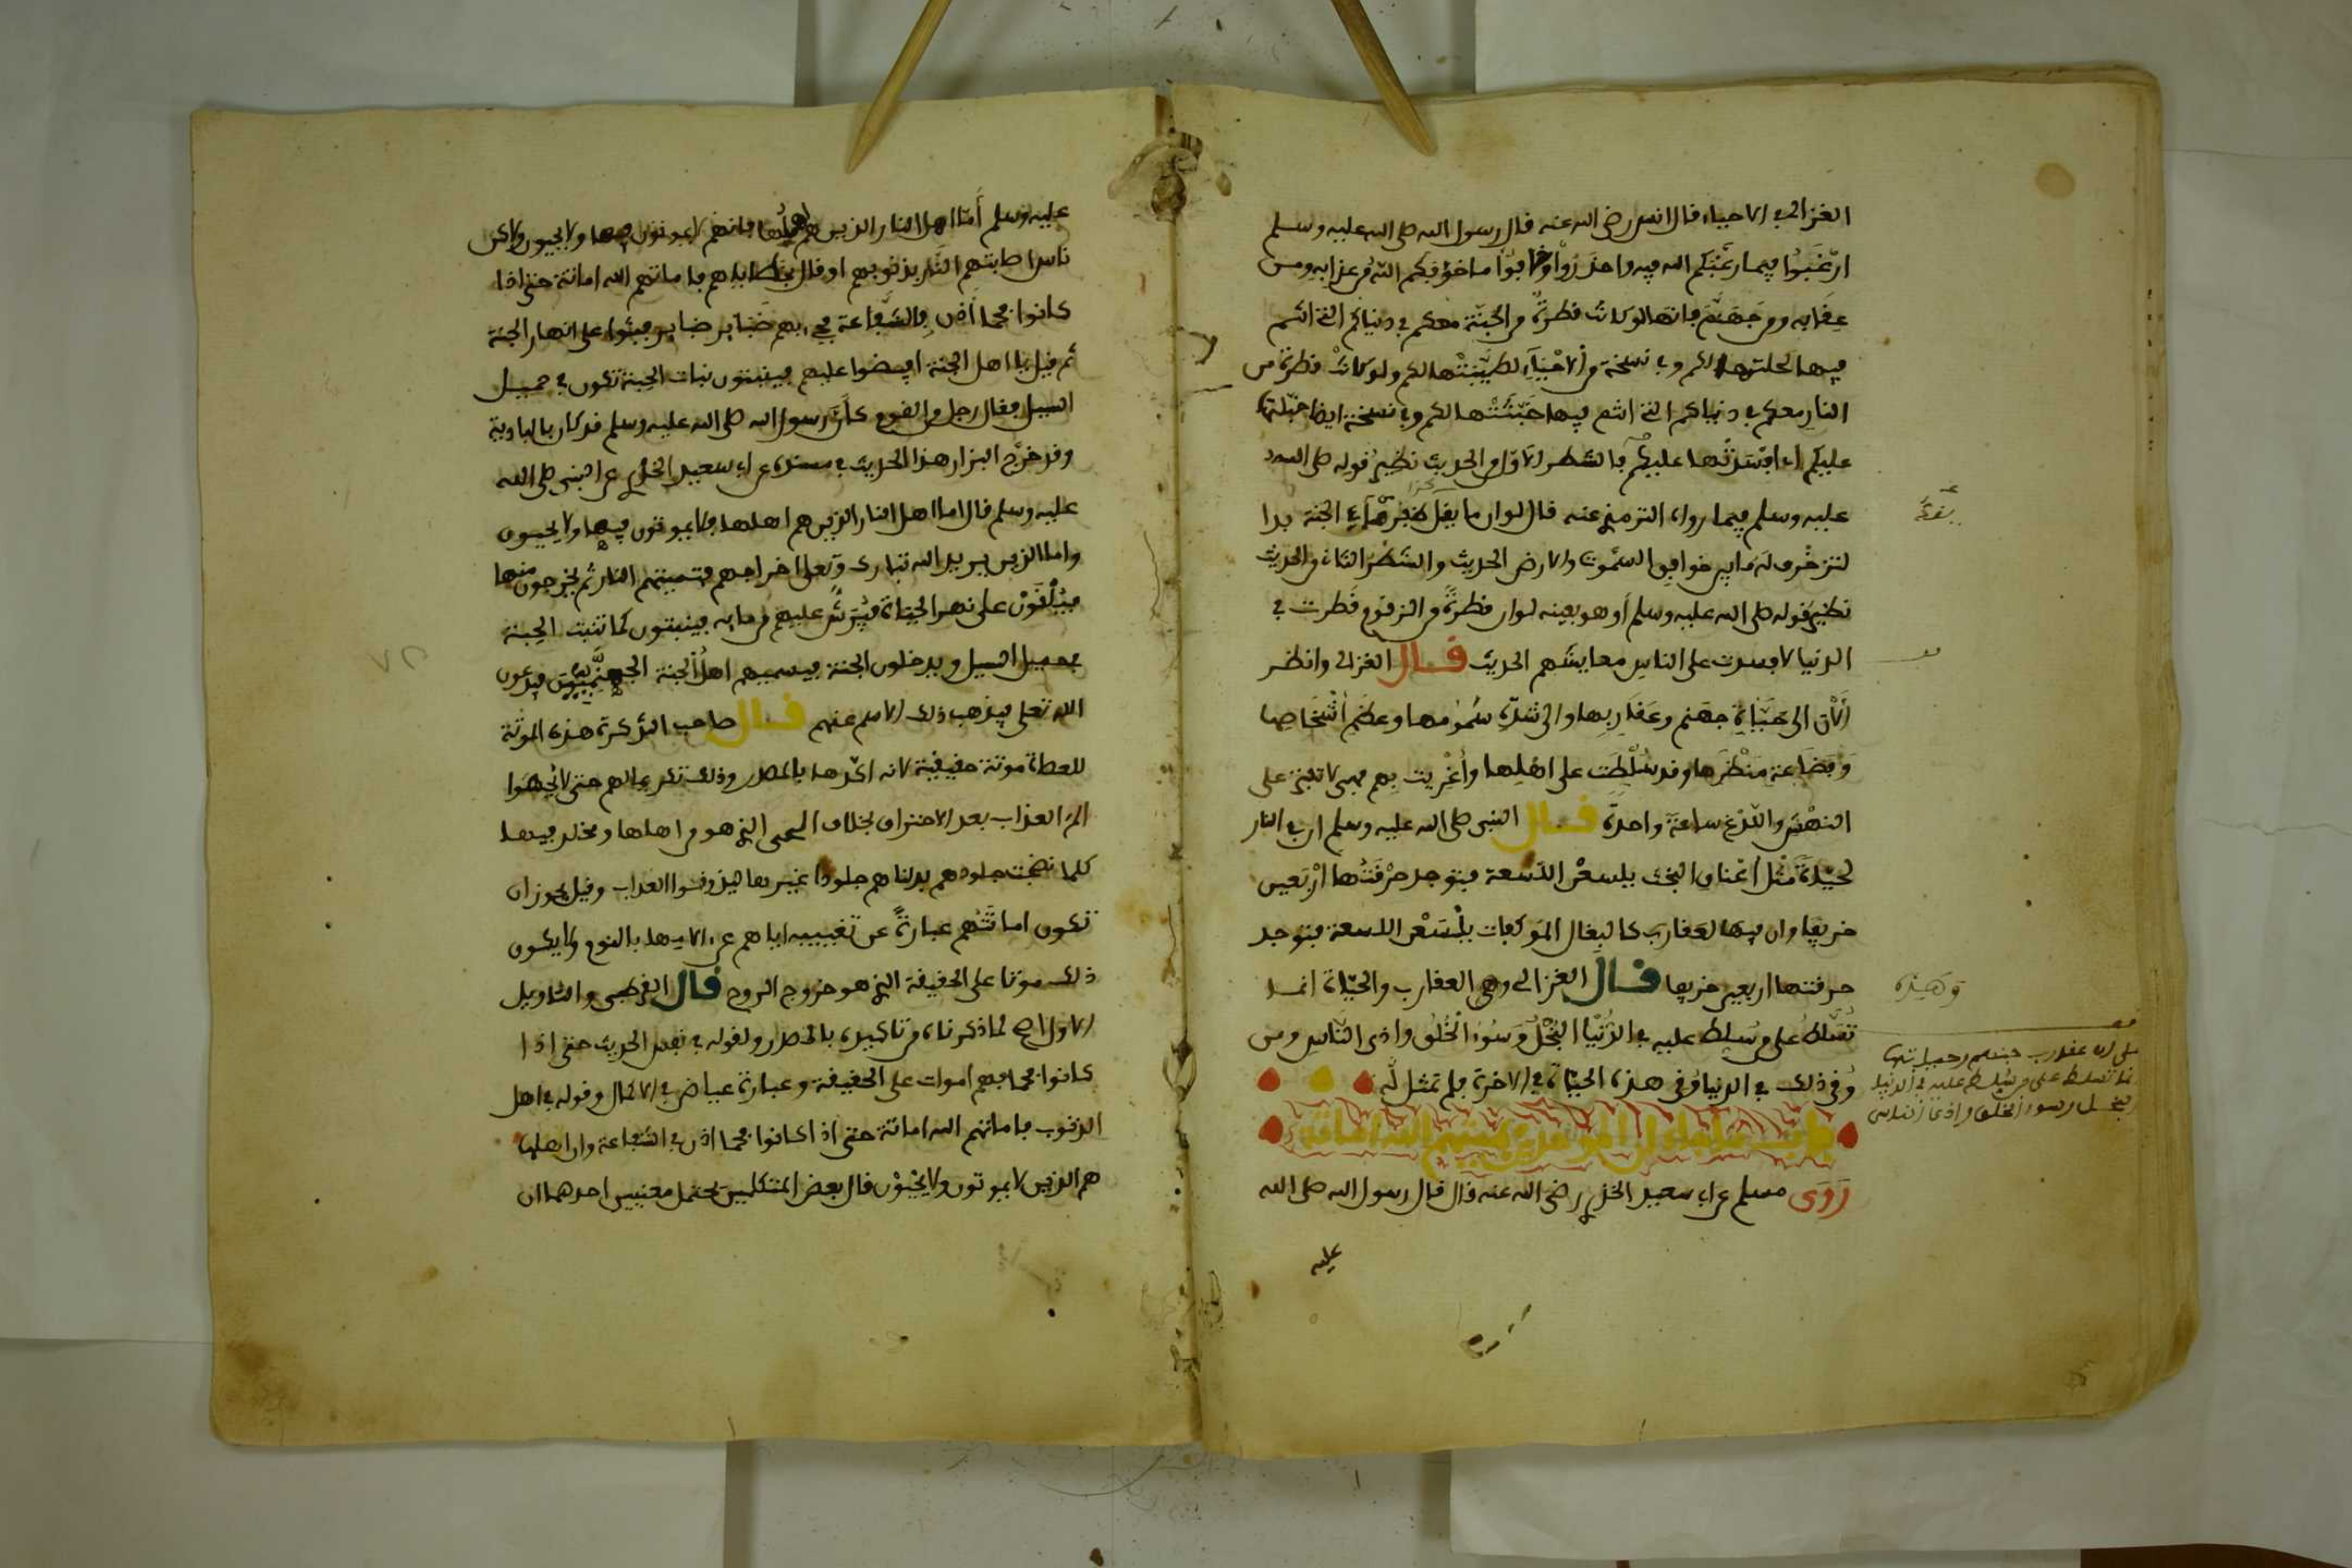 الغزالي في الاحياء قال انس رضي الله عنه قال رسول الله صلى الله عليه وسلم
ارْغَبُوا فيما رغّبكم الله فيه واحذروا وخافوا ما خوفكم الله من عذابه ومن
عقابه ومن جهنم فانها لو كانت قطرة من الجنة معكم في دنياكم التي انتم
فيها لحلتها لكم وفي نسخة من الاحياء لطيّبتها لكم ولو كانت قطرة من
النار معكم في دنياكم التي انتم فيها خبّثتها لكم وفي نسخة ايضا
عليكم اي افسدتها عليكم فالشطر الاول من الحديث نظير قوله صلى الله
عليه وسلم فيما رواه الترمذي عنه قال لو ان ما يقل ظفر مما في الجنة بدا
لتزخرف له ما بين خوافق السموت والارض الحديث والشطر الثاني من الحديث
نظير قوله صلى الله عليه وسلم أو هو بعينه لو ان قطرة من الزقوم قطرت في
الدنيا لافسدت على الناس معايشهم الحديث قال الغزالي وانظر
الآن الى حيّات جهنم وعقاربها والى شدة سمومها وعظم اشخاصها
وفضاعة منظرها وقد سُلّطت على اهلها واُغْريت بهم فهي لا تفتر على
النهش واللدغ ساعة واحدة قال النبي صلى الله عليه وسلم ان في النار
لحيّات مثل أعناق البخت يلسعن اللسعة فيوجد حرقتها اربعين
خريفا وان فيها لعقارب كالبغال الموكفات يلسعن اللسعة فيوجد
حرقتها اربعين خريفا قال الغزالي وهي العقارب والحيّات انما
تُسلّط على من سلط عليه في الدنيا البخل وسوء الخلق واذى الناس ومن
وُقي ذلك في الدنيا وُقي هذه الحيّات في الاخرة فلم تمثل له
باب
رَوَى مسلم عن ابي سعيد الخدري رضي الله عنه قال قال رسول الله صلى الله
عليه
وهذه
على ان عقارب جهنم وحياتها
انما تسلط على من سلط عليه في الدنيا
البخل وسوء الخلق واذى الناس
عليه وسلم أمّا اهل النار الذين هم اهلها فانهم لا يموتون فيها ولا يحيون ولاكن
ناس اصابتهم النار بذنوبهم او قال بخطاياهم فاماتهم الله اماتة حتى اذا
كانوا فحما أُذن بالشفاعة فجيء بهم ضبائر ضبائر فبثوا على انهار الجنة
ثم قيل يا اهل الجنة افيضوا عليهم فينبتون نبات الحبة تكون في حميل
السيل فقال رجل من القوم كأن رسول الله صلى الله عليه وسلم قد كان بالبادية
وقد خرّج البزار هذا الحديث في مسنده عن ابي سعيد الخدري عن النبي صلى الله
عليه وسلم قال اما اهل النار الذين هم اهلها فلا يموتون فيها ولا يحيون
واما الذين يريد الله تبارك وتعلى اخراجهم فتميتهم النار ثم يخرجون منها
فيُلْقَوْن على نهر الحياة فيُرَشّ عليهم من مايه فينبتون كما تنبت الحبة
بحميل السيل ويدخلون الجنة فيسميهم اهل الجنة الجهنميون فيدعون
الله تعلى فيذهب ذلك الاسم عنهم قال صاحب التذكرة هذه الموتة
للعصاة موتة حقيقية لانه اكّدها بالمصدر وذلك تكريما لهم حتى لا يحسوا
الم العذاب بعد الاحتراق بخلاف الحي الذي هو من اهلها ومخلد فيها
كلما نضجت جلودهم بدلناهم جلودا غيرها ليذوقوا العذاب وقيل يجوز ان
تكون اماتتهم عبارة عن تغييبه اياهم عن الامها بالنوم ولا يكون
ذلك موتا على الحقيقة الذي هو خروج الروح قال القرطبي والتاويل
الاول اصح لما ذكرناه من تاكيده بالمصدر ولقوله في نفس الحديث حتى اذا
كانوا فحما فهم اموات على الحقيقة وعبارة عياض في الاكمال وقوله في اهل
الذنوب فاماتهم الله اماتة حتى اذا كانوا فحما اذن في الشفاعة وان اهلها
هم الذين لا يموتون ولا يحيون قال بعض المتكلمين يحتمل معنيين احدهما ان